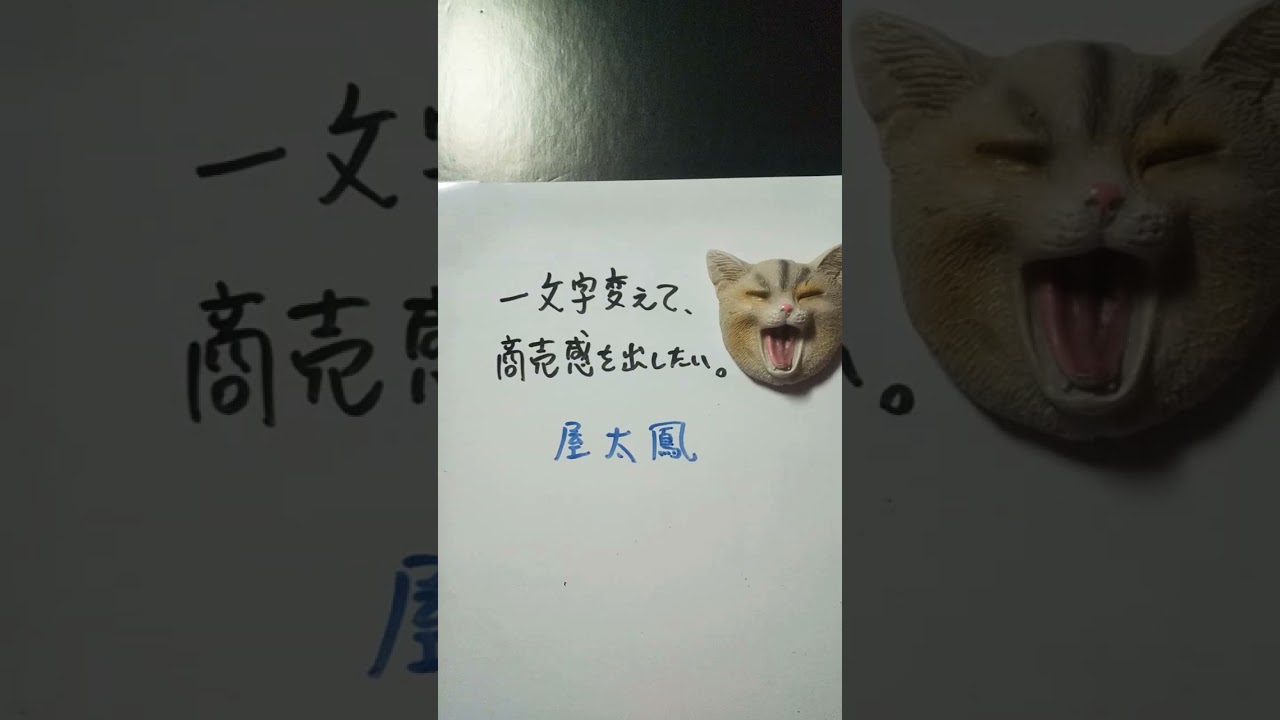 一文字変えて、
商売感を出したい。
屋太鳳